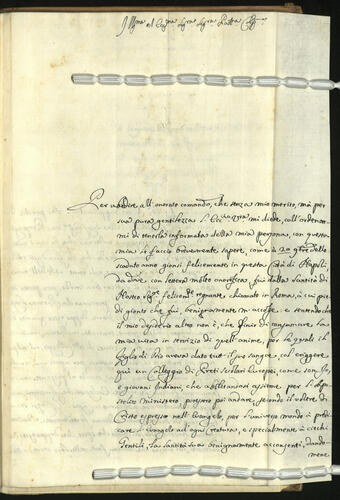 Ill.ma et Ecc.ma Sig.ra Sig.ra Padr.a
Per ubbidire all'onorato comando, che senza mio merito, mà per
sua pura gentilezza V. Ecc.za mi diede, coll'ordenar=
mi di tenerla informata della mia persona, con questa
mia le faccio brevemente sapere, come à 20 9bre dello
scaduto anno gionsi felicemente in questa Città di Napoli,
da dove con lettera molto onorifica, fui dalla Santità di
Nostro Sig.re felicem.te regnante chiamato in Roma, à cui piedi
gionto che fui, benignamente m'accolse, e sentendo che
il mio desiderio altro non è, che finir di consumare la
mia vita in servizio di quell'anime, per le quali il
Figlio di Dio aveva dato tutto il suo sangue, col eriggere
quì un Colleggio di Preti secolari Europei, come son Io,
e giovani Indiani, che abilitandosi assieme per l'Apo=
stolico ministero, potessero poi andare, secondo il volere di
Cristo espresso nell'Evangelo, per l'universo mondo à predi=
care l'Evangelo ad ogni creatura, e specialmente à ciechi
Gentili, la Santità Sua benignamente acconsentì, dando=
mene